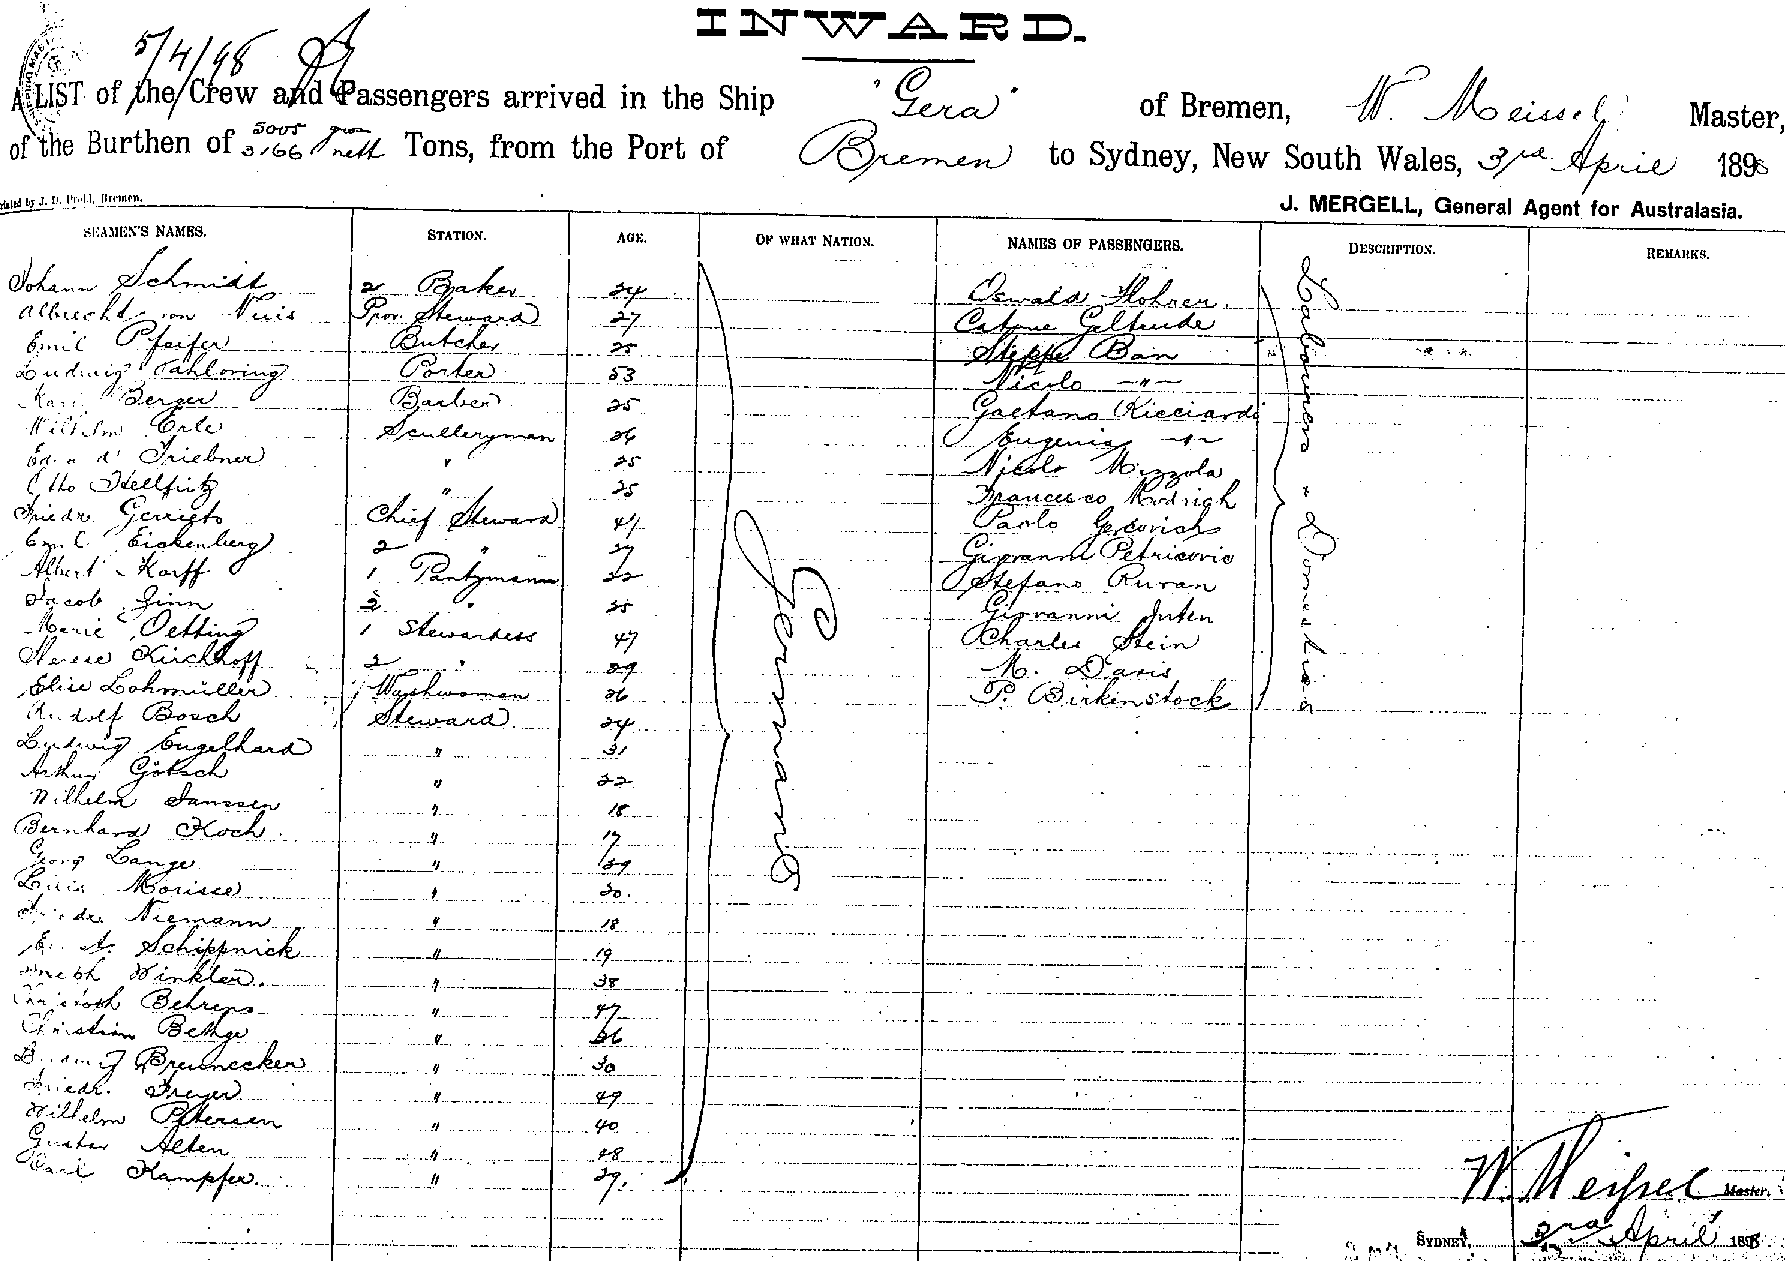 INWARD.
5/4/98
A LIST of the Crew and Passengers arrived in the Ship "Gera" of Bremen, W. Meissel Master,
of the Burthen of 5005 gross 3166 nett Tons, from the Port of Bremen to Sydney, New South Wales, 3rd April 1898
Printed by J. D. Bremen.
J. MERGELL, General Agent for Australasia.
SEAMEN'S NAMES. STATION. AGE. OF WHAT NATION. NAMES OF PASSENGERS. DESCRIPTION. REMARKS.
Johann Schmidt 2 Baker 24 Oswald
Albrecht von Prov. Steward 27 Geltrude
Emil Pfeifer Butcher 25 Ban
Ludwig Porter 53 Nicolo —"—
Karl Berger Barber 25 Gaetano Ricciardi
Wilhelm Erle Sculleryman 26 Eugenia —"—
Triebner " 25 Nicolo Mizzola
Otto Hellfritz " 25 Francesco Rodrigh
Friedr. Gerriets Chief Steward 41 Paolo
Emil Eickenberg 2 " 27 Giovanni Petricovic
Albert Korff 1 Pantrymann 22 Stefano Ruvan
Jacob Zinn 2 " 25 Giovanni
Marie Oetting 1 Stewardess 47 Charles Stein
Therese Kirchhoff 2 " 29 M. Davis
Elise Lohmüller Washwoman 26 P. Birkenstock
Rudolf Bosch Steward 24
Ludwig Engelhard " 31
Arthur Götsch " 22
Wilhelm Janssen " 18
Bernhard Koch " 17
Georg Lange " 29
Louis Morisse " 20
Friedr. Niemann " 18
Schippnick " 19
Joseph Winkler " 38
Christoph Behrens " 47
Christian Bethge " 26
Ludwig Brennecker " 30
Friedr. Freyer " 49
Wilhelm Petersen " 40
Gustav Alten " 48
Carl Kampfer. " 29.
Germany
Labourers & Domestics
W. Meissel Master.
SYDNEY, 3rd April 1898